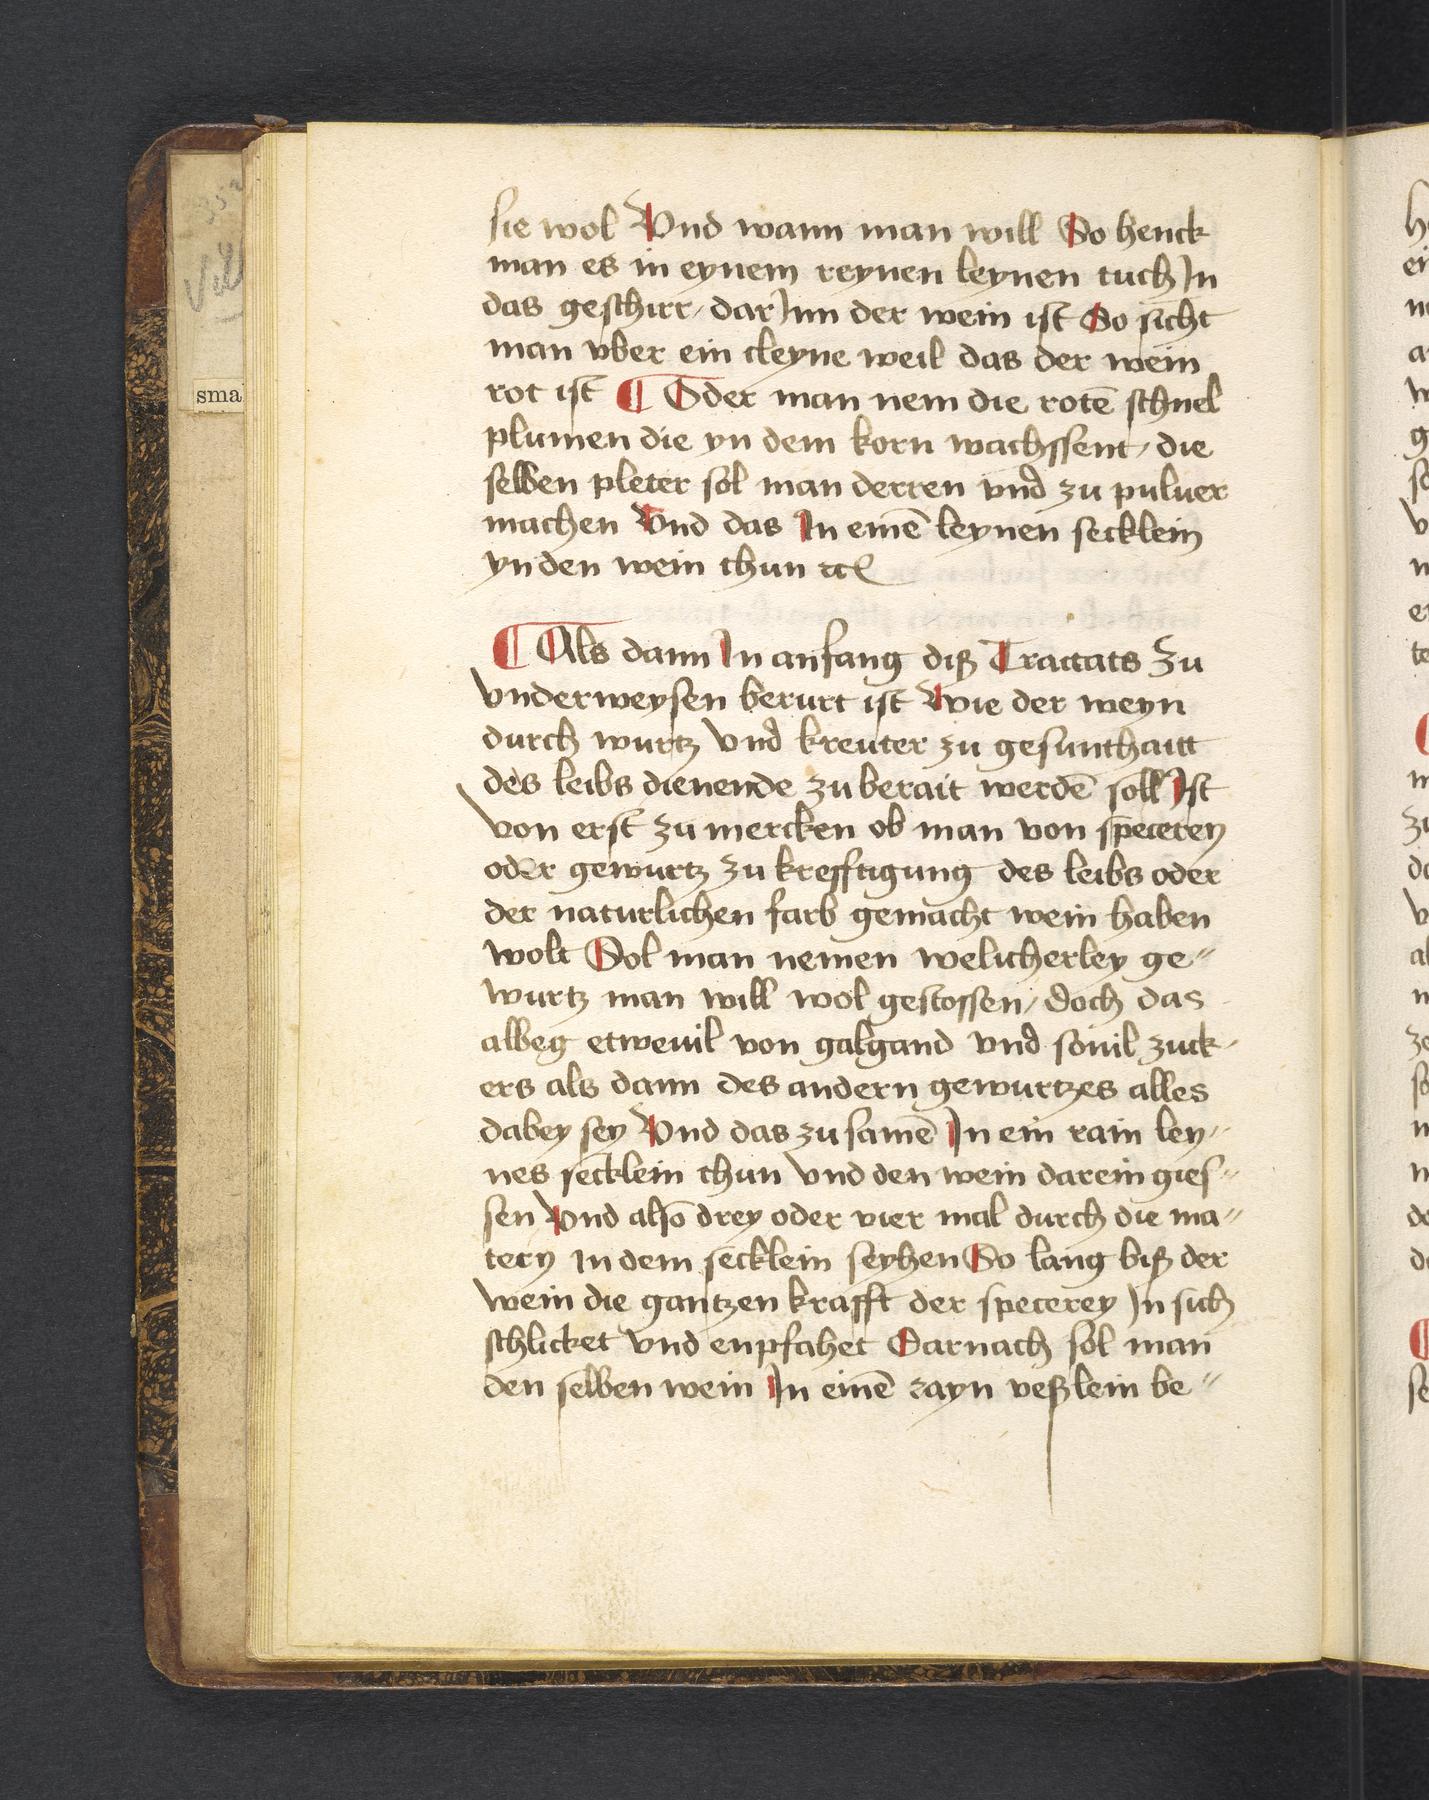 sie wol Vnd wann man will So henck
man es in eynem reynen leynen tuch In
das geschirr / dar Inn der wein ist So sicht
man vber ein cleyne weil das der wein
rot ist ¶ Oder man nem die rotē schnel
plumen die yn dem korn wachssent / die
selben pleter sol man derren vnd zu puluer
machen Vnd das In einē leynen secklein
yn den wein thun
¶ Als dann In anfang diß Tractats Zu
vnderweysen berurt ist Wie der weyn
durch wurtz vnd kreuter zu gesunthaitt
des leibs dienende zu berait werdē soll Ist
von erst zu mercken ob man von specerey
oder gewurtz zu krefftigung des leibs oder
der naturlichen farb gemacht wein haben
wolt Sol man nemen welicherley ge"
wurtz man will wol gestossen / doch das
alweg etweuil von galgand vnd souil zuck-
ers als dann des andern gewurtzes alles
dabey sey Vnd das zu samē In ein rain ley"
nes secklein thun vnd den wein darein gies"
sen Vnd also drey oder vier mal durch die ma"
tery In dem secklein seyhen So lang biß der
wein die gantzen krafft der specerey In sich
schlicket vnd enpfahet Darnach sol man
den selben wein In einē rayn veßlein be"
sma